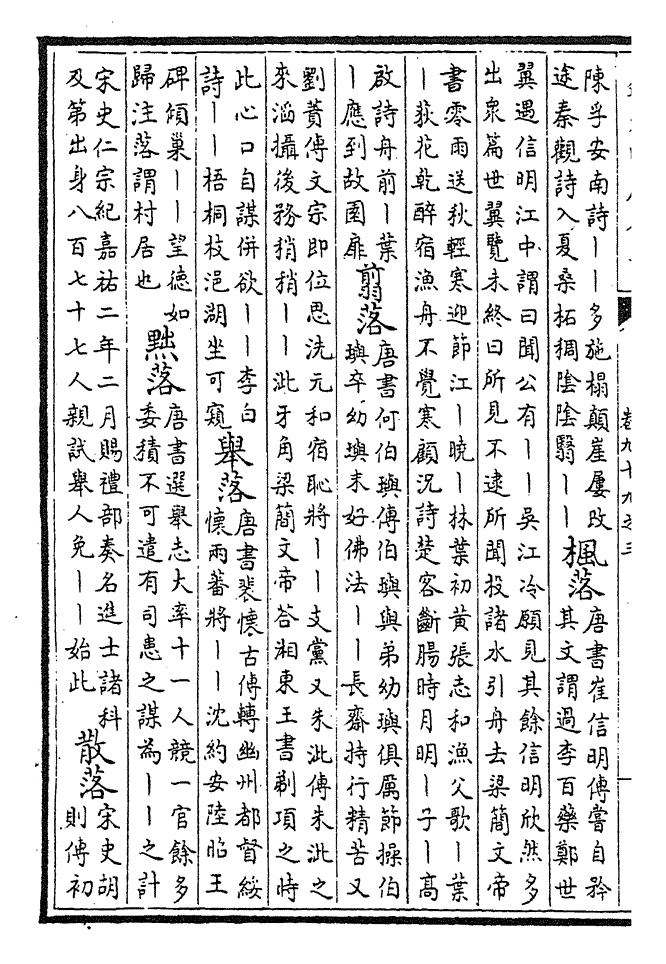 陳孚安南詩丨丨多施榻顛崖屢改
途秦觀詩入夏桑柘稠陰陰翳丨丨
楓落
唐書崔信明傳嘗自矜
其文謂過李百藥鄭世
翼遇信明江中謂曰聞公有丨丨吳江冷願見其餘信明欣然多
出衆篇世翼覽未終曰所見不逮所聞投諸水引舟去梁簡文帝
書零雨送秋輕寒迎節江丨曉丨林葉初黃張志和漁父歌丨葉
丨荻花乾醉宿漁舟不覺寒顧況詩楚客斷腸時月明丨子丨高
啟詩舟前丨葉
丨應到故園扉
翦落
唐書何伯璵傳伯璵與弟幼璵俱厲節操伯
璵卒幼璵末好佛法丨丨長齋持行精苦又
劉蕡傳文宗即位思洗元和宿恥將丨丨支黨又朱泚傳朱泚之
來滔攝後務稍稍丨丨泚牙角梁簡文帝荅湘東王書剃項之時
此心口自謀併欲丨丨李白
詩丨丨梧桐枝浥湖坐可窺
舉落
唐書裴懷古傳轉幽州都督綏
懷兩蕃將丨丨沈約安陸昭王
碑傾巢丨丨望德如
歸注落謂村居也
黜落
唐書選舉志大率十一人競一官餘多
委積不可遣有司患之謀為丨丨之計
宋史仁宗紀嘉祐二年二月賜禮部奏名進士諸科
及第出身八百七十七人親試舉人免丨丨始此
散落
宋史胡
則傳初
卷九十九之三